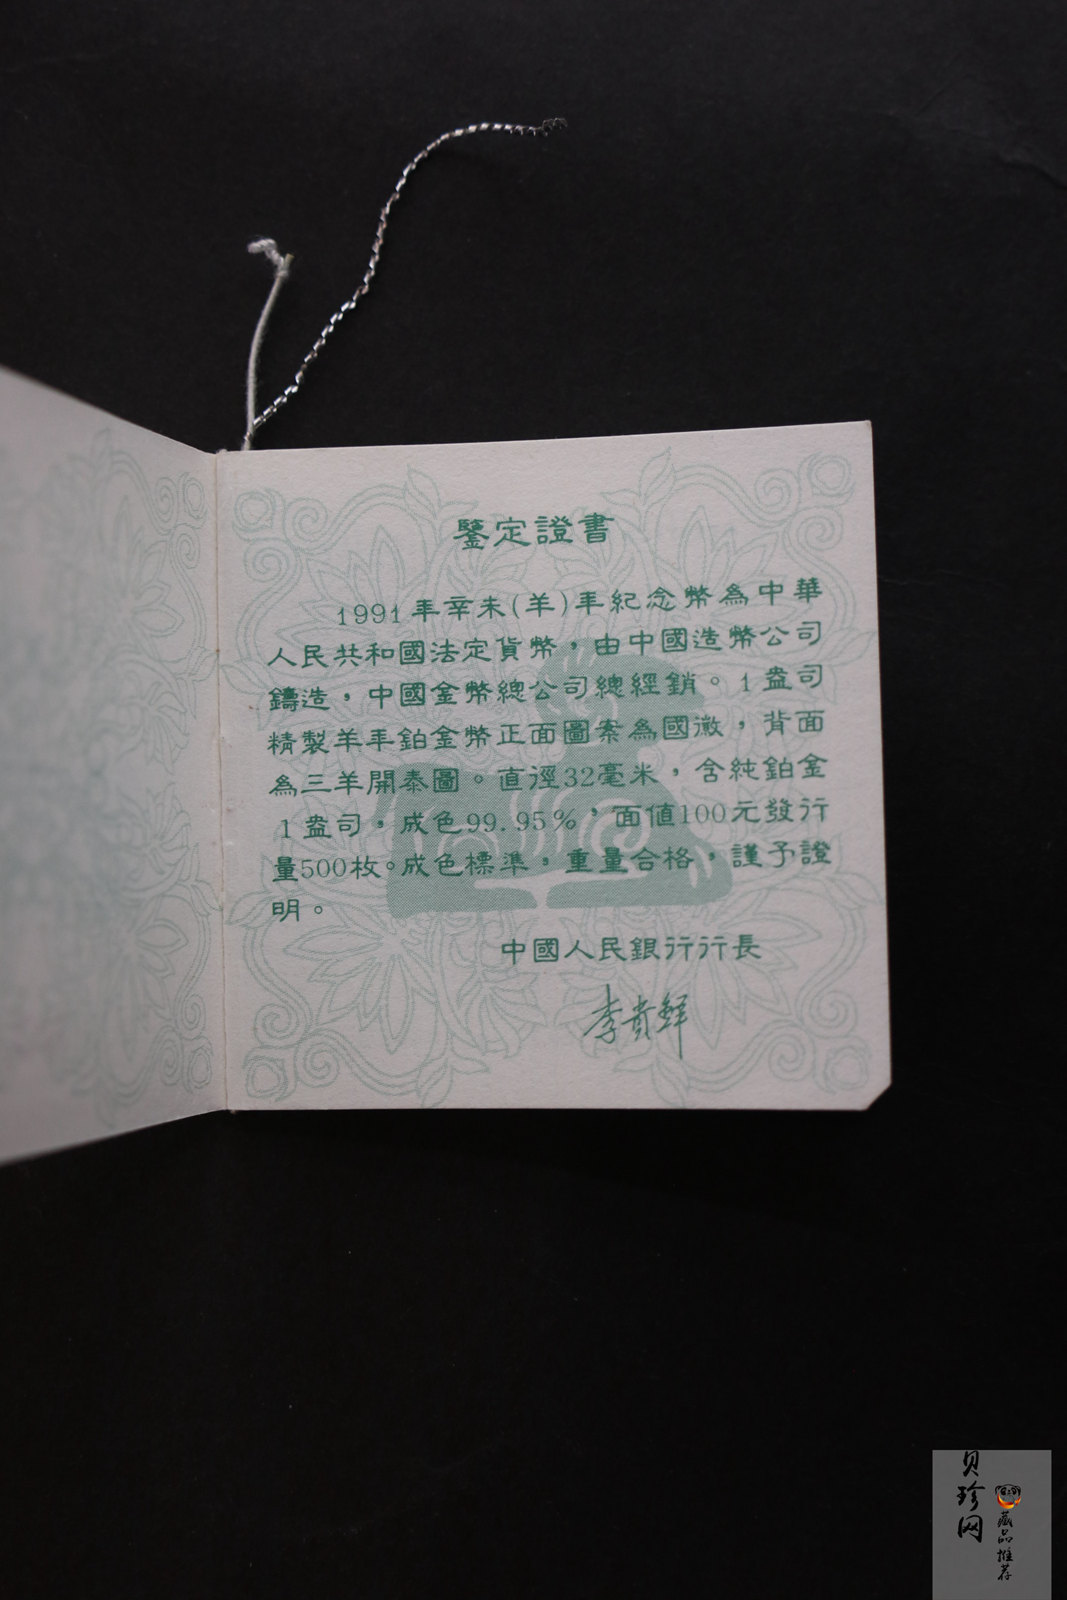 鑒定證書
1991年辛未(羊)年紀念幣為中華
人民共和國法定貨幣，由中國造幣公司
鑄造，中國金幣總公司總經銷。1盎司
精製羊年鉑金幣正面圖案為國徽，背面
為三羊開泰圖。直徑32毫米，含純鉑金
1盎司，成色99.95%，面值100元發行
量500枚。成色標準，重量合格，謹予證
明。
中國人民銀行行長
李貴鲜
贝珍网
藏品推荐